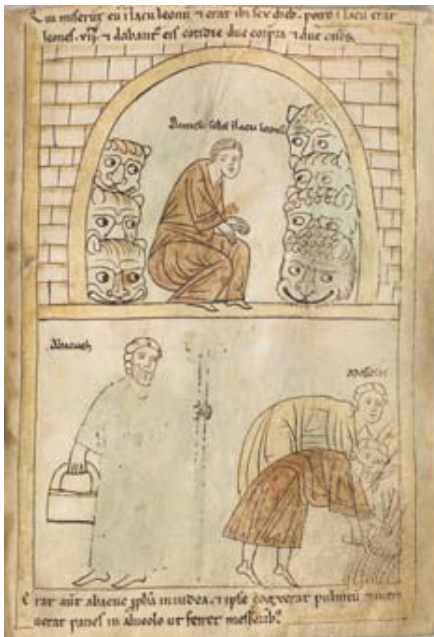 Qui miserūt eū ī lacu leonū ⁊ erat ibi sex dieb. porro ī lacu erāt
leones. vij. ⁊ dabant̄ eis cotidie duo corpora ⁊ due oues.
Daniel sedet ī lacu leonū
Abacuch
Erat aūt abacuc ꝓpha in iudea. ⁊ ipse coxerat pulmtū ⁊ intri
uerat panes in alueolo ut ferret messorib;